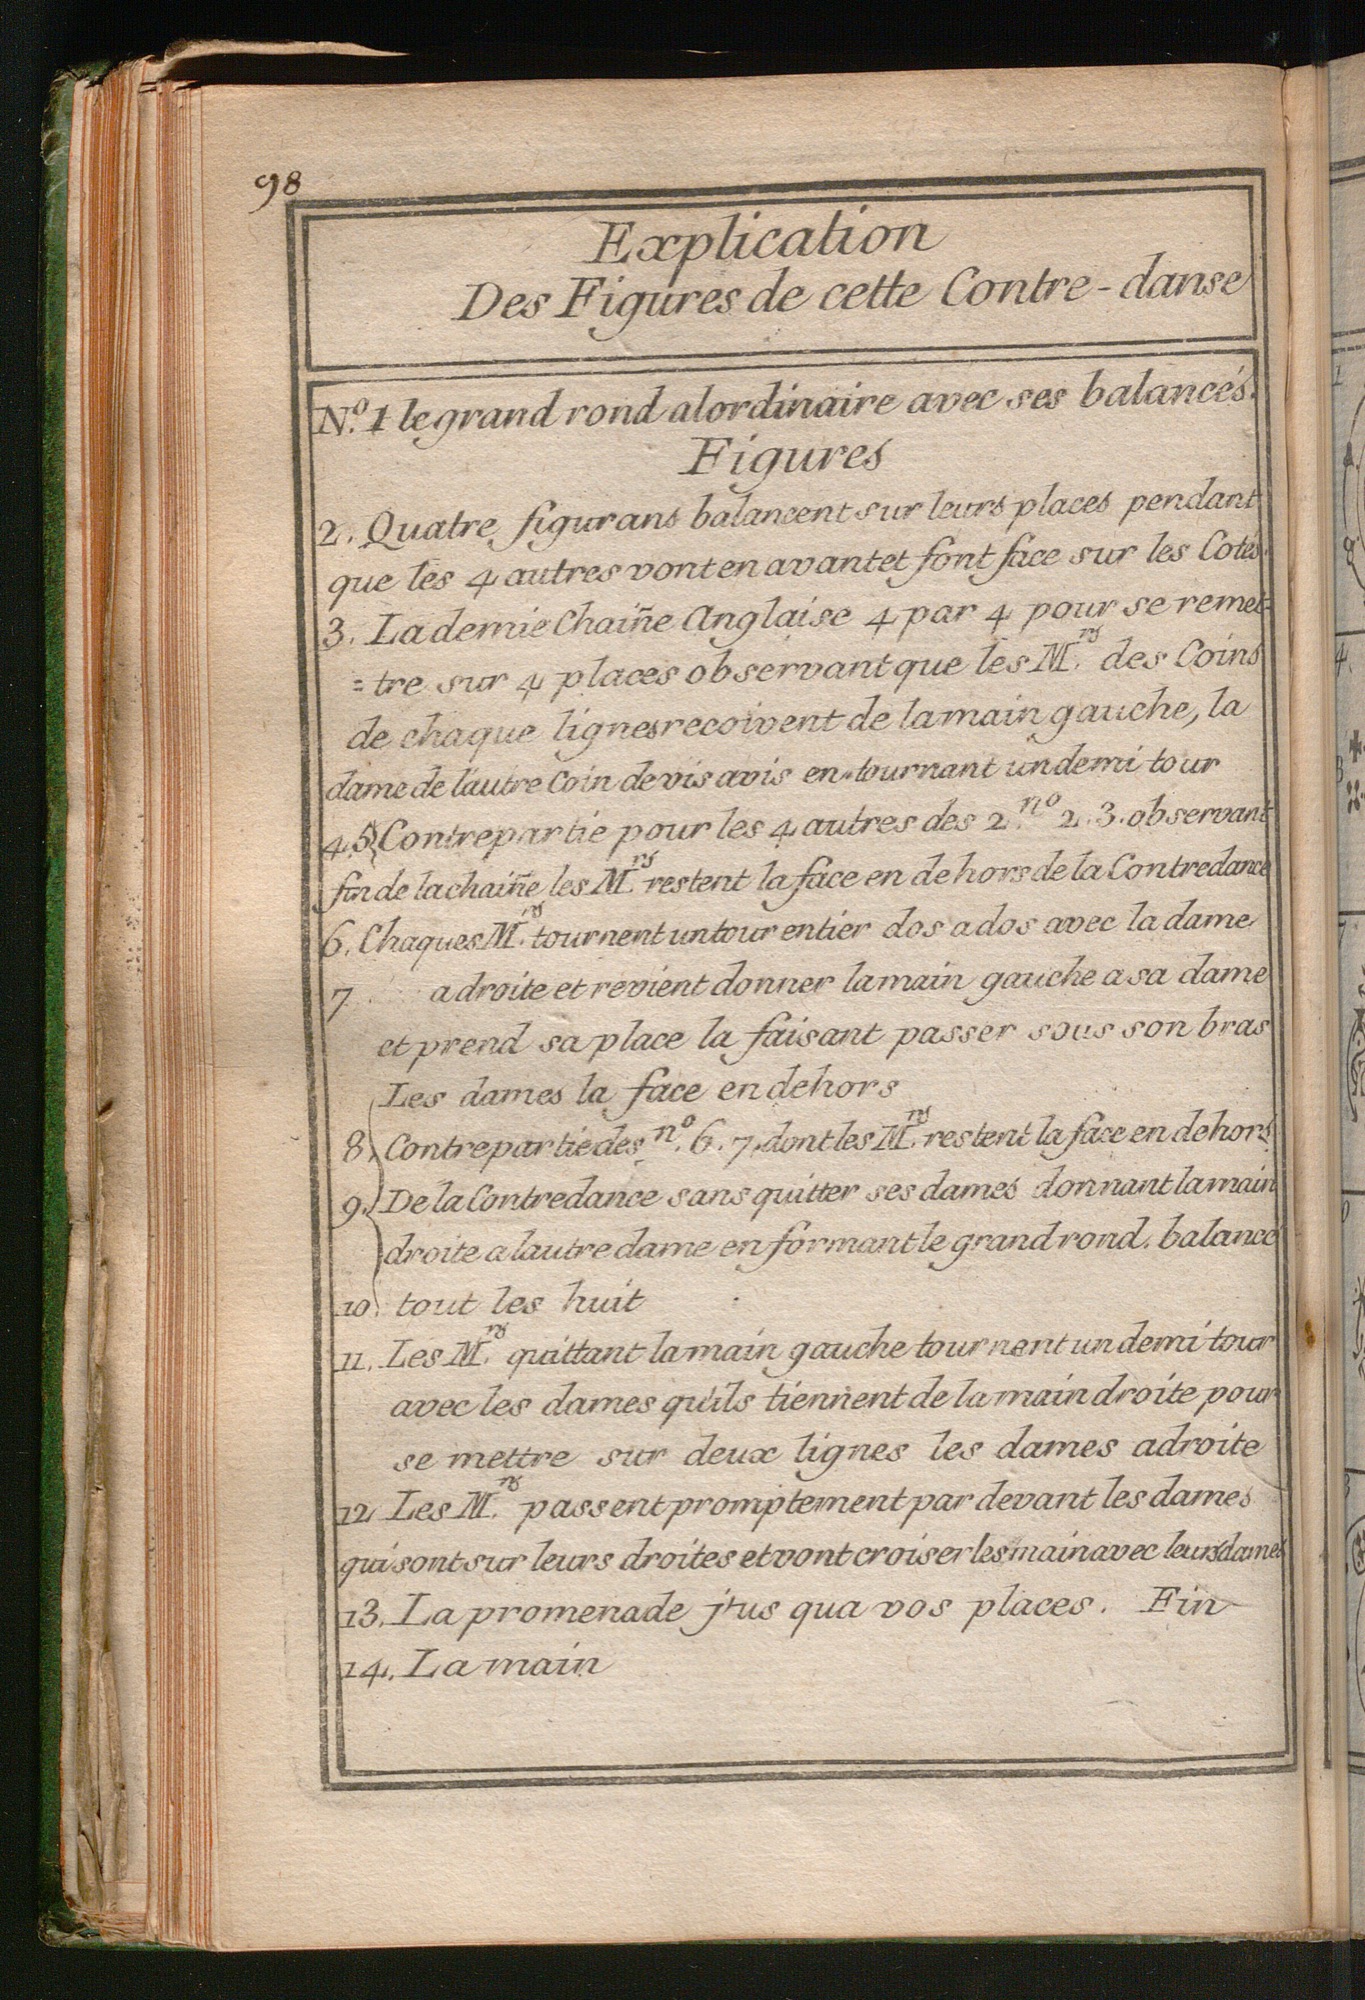 98
Explication
Des Figures de cette Contre-danse
N.º 1 le grand rond alordinaire avec ses balancés.
Figures
2. Quatre figurans balancent sur leurs places pendant
que les 4 autres vont en avant et font face sur les Cotés.
3. La demie Chaiñe Anglaise 4 par 4 pour se remet=
=tre sur 4 places observant que les M.rs des Coins
de chaque lignes recoivent de la main gauche, la
dame de l'autre Coin de vis avis en tournant un demi tour
4.5 Contrepartie pour les 4 autres des 2.no 2.3. observant
fin de la chaiñe les M.rs restent la face en dehors de la Contredance
6. Chaques M.rs tournent un tour entier dos a dos avec la dame
7 a droite et revient donner la main gauche a sa dame
et prend sa place la faisant passer sous son bras
Les dames la face en dehors
8. Contrepartie des no. 6. 7. dont les M.rs restent la face en dehors
9. De la Contredance sans quitter ses dames donnant la main
droite a lautre dame en formant le grand rond. balancé
10. tout les huit
11. Les M.rs quittant la main gauche tournent un demi tour
avec les dames qu'ils tiennent de la main droite pour
se mettre sur deux lignes les dames a droite
12 Les M.rs passent promptement par devant les dames
qui sont sur leurs droites et vont croiser les main avec leurs dames
13. La promenade j'us qua vos places. Fin
14. La main